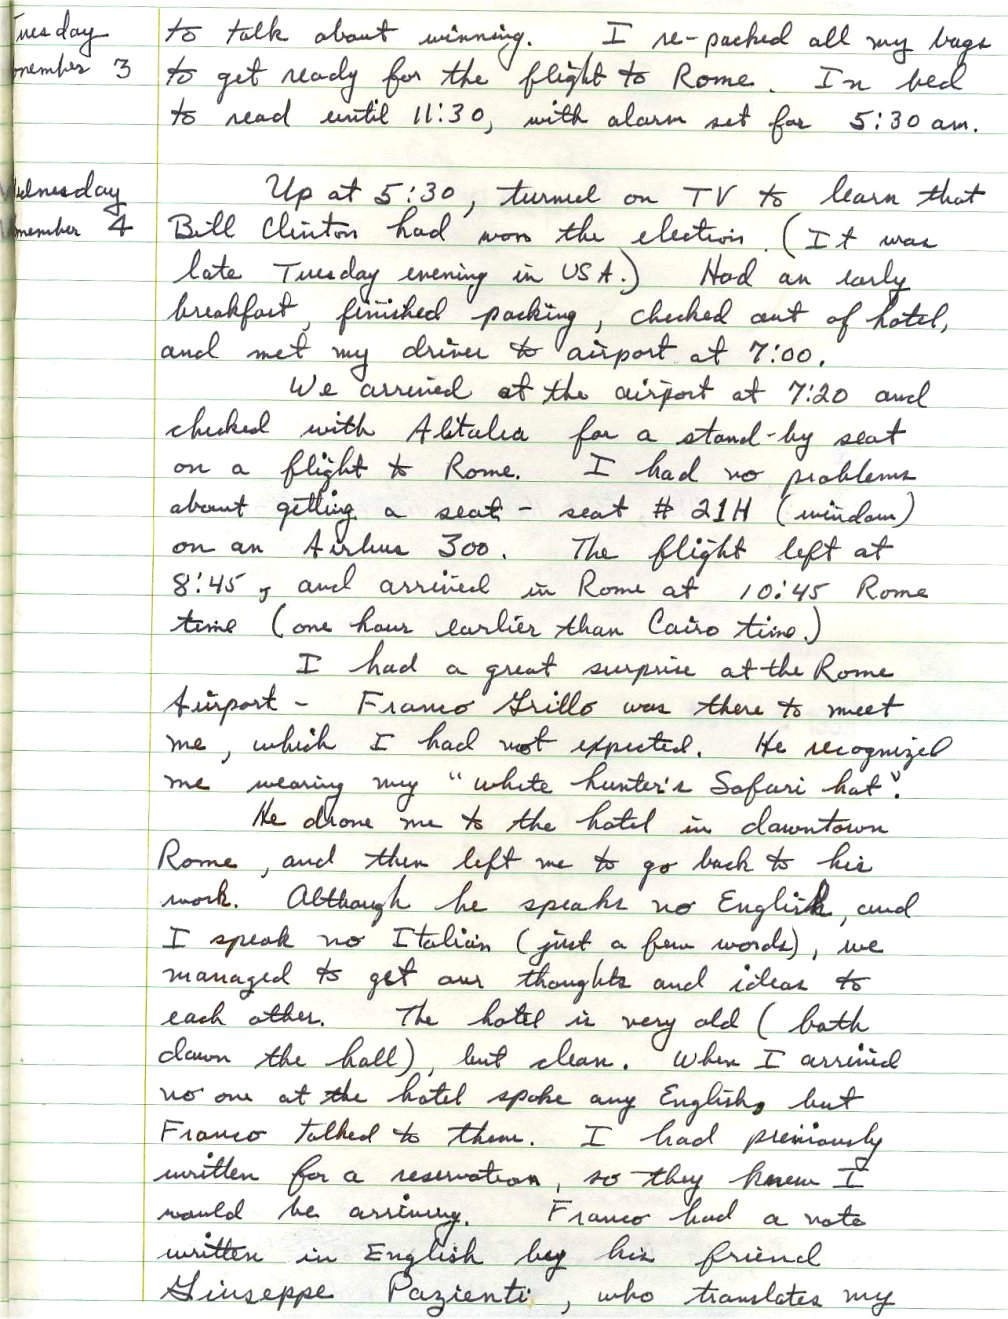 Tuesday
November 3
to talk about winning. I re-packed all my bags
to get ready for the flight to Rome. In bed
to read until 11:30, with alarm set for 5:30 am.
Wednesday
November 4
Up at 5:30, turned on TV to learn that
Bill Clinton had won the election. (It was
late Tuesday evening in USA.) Had an early
breakfast, finished packing, checked out of hotel,
and met my driver to airport at 7:00.
We arrived at the airport at 7:20 and
checked with Alitalia for a stand-by seat
on a flight to Rome. I had no problems
about getting a seat - seat # 21H (window)
on an Airbus 300. The flight left at
8:45, and arrived in Rome at 10:45 Rome
time (one hour earlier than Cairo time.)
I had a great surprise at the Rome
Airport - Franco Grillo was there to meet
me, which I had not expected. He recognized
me wearing my "white hunter's Safari hat".
He drove me to the hotel in downtown
Rome, and then left me to go back to his
work. Although he speaks no English, and
I speak no Italian (just a few words), we
managed to get our thoughts and ideas to
each other. The hotel is very old (bath
down the hall), but clean. When I arrived
no one at the hotel spoke any English, but
Franco talked to them. I had previously
written for a reservation, so they knew I
would be arriving. Franco had a note
written in English by his friend
Giuseppe Pazienti, who translates my